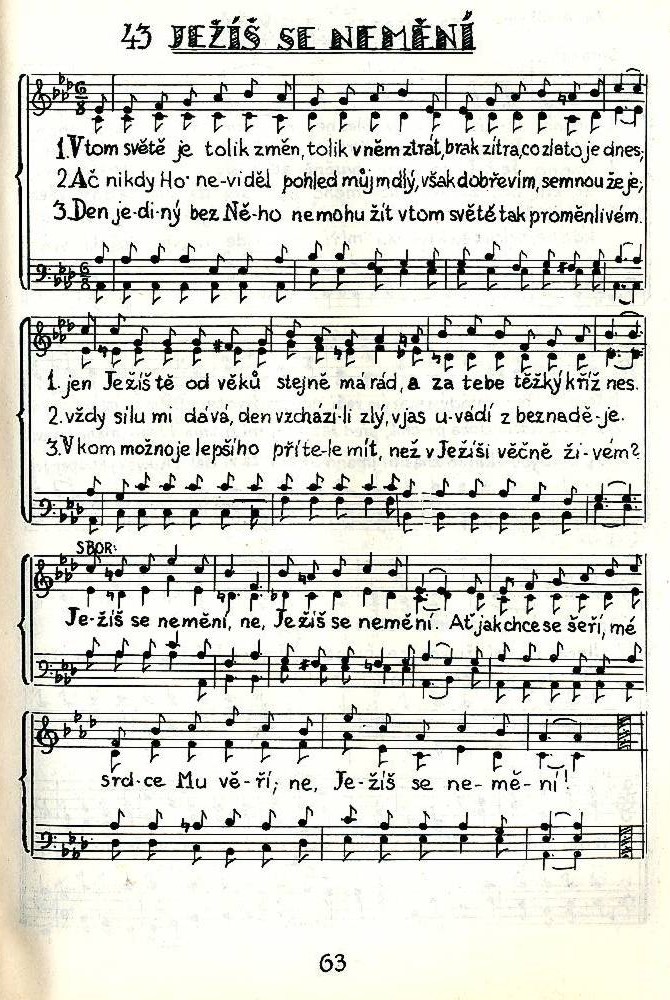 43 JEŽÍŠ SE NEMĚNÍ
6/8
1. V tom světě je tolik změn, tolik v něm ztrát, brak zítra, co zlato je dnes;
2. Ač nikdy Ho ne-viděl pohled můj mdlý, však dobře vím, se mnou že je;
3. Den je-di-ný bez Ně-ho nemohu žít v tom světě tak proměnlivém.
6/8
1. jen Ježíš tě od věků stejně má rád, a za tebe těžký kříž nes.
2. vždy sílu mi dává, den vzchází-li zlý, v jas u-vádí z beznadě-je.
3. V kom možno je lepšího příte-le mít, než v Ježíši věčně ži-vém?
SBOR:
Je-žíš se nemění, ne, Ježíš se nemění. Ať jak chce se šeří, mé
srd-ce Mu vě-ří; ne, Je-žíš se ne-mě-ní!
63